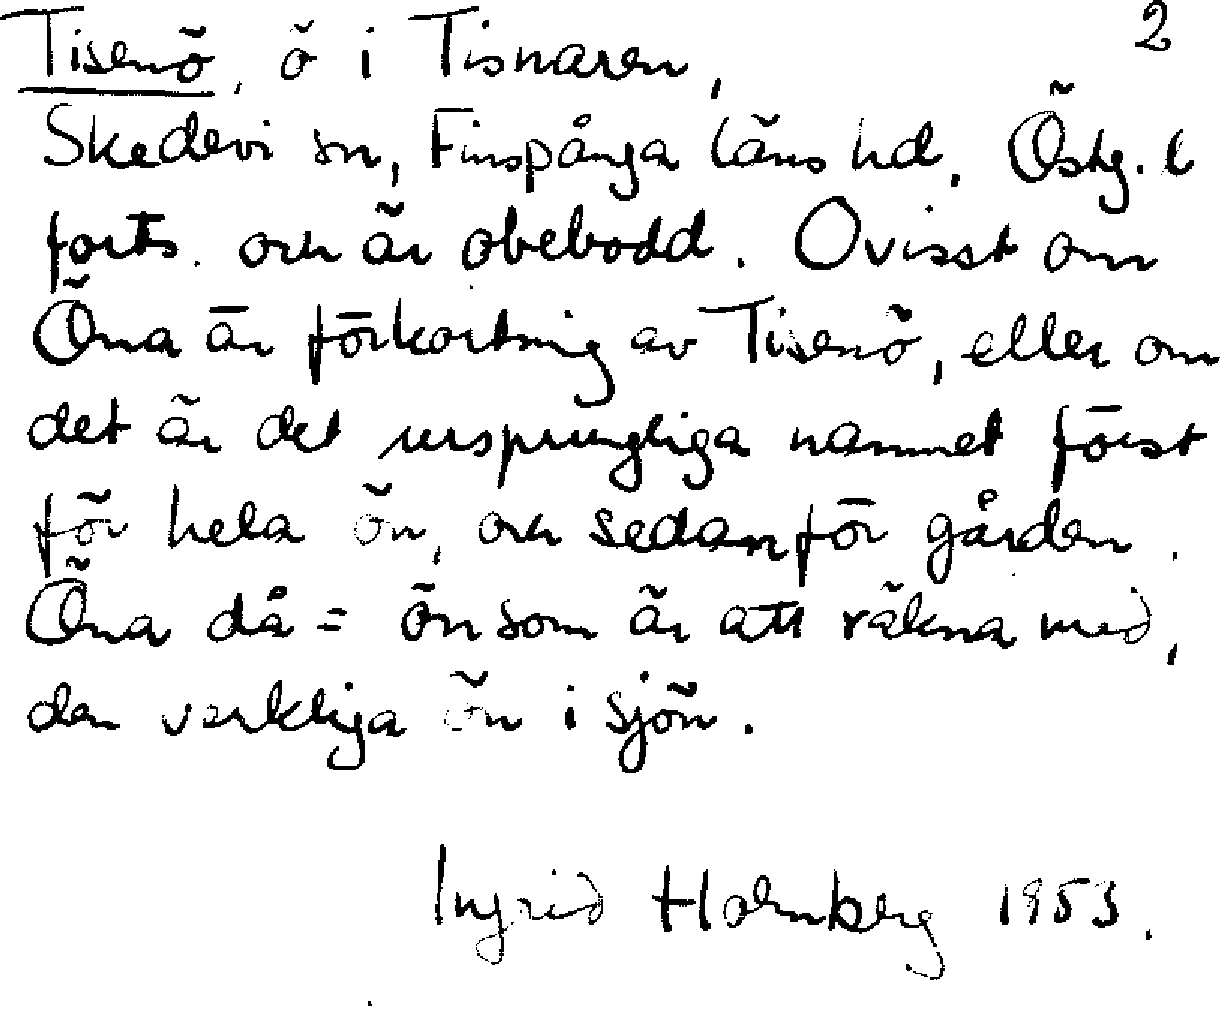 Tisenö, ö i Tisnaren, 2
Skedevi sn, Finspånga läns hd. Östg. l
forts. och är obebodd. Ovisst om
Öna är förkortning av Tisenö, eller om
det är det ursprungliga namnet först
för hela ön, och sedan för gården.
Öna då = ön som är att räkna med,
den verkliga ön i sjön.
Ingrid Holmberg 1953.